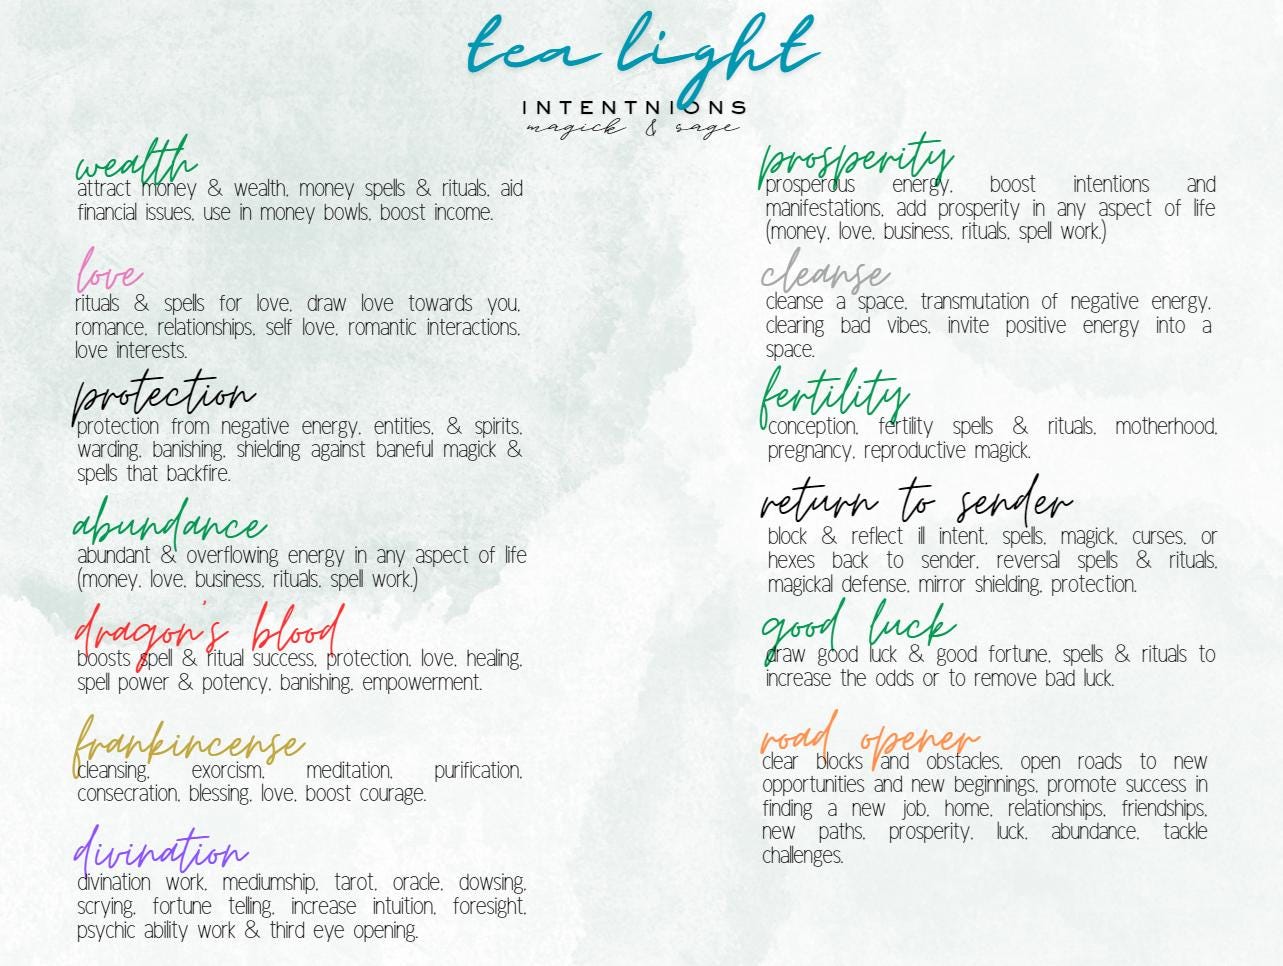 tea light
INTENTNIONS
magick & sage
wealth
attract money & wealth, money spells & rituals, aid
financial issues, use in money bowls, boost income.
love
rituals & spells for love, draw love towards you,
romance, relationships, self love, romantic interactions,
love interests.
protection
protection from negative energy, entities, & spirits,
warding, banishing, shielding against baneful magick &
spells that backfire.
abundance
abundant & overflowing energy in any aspect of life
(money, love, business, rituals, spell work.)
dragon's blood
boosts spell & ritual success, protection, love, healing,
spell power & potency, banishing, empowerment.
frankincense
cleansing, exorcism, meditation, purification,
consecration, blessing, love, boost courage.
divination
divination work, mediumship, tarot, oracle, dowsing,
scrying, fortune telling, increase intuition, foresight,
psychic ability work & third eye opening.
prosperity
prosperous energy, boost intentions and
manifestations, add prosperity in any aspect of life
(money, love, business, rituals, spell work.)
cleanse
cleanse a space, transmutation of negative energy,
clearing bad vibes, invite positive energy into a
space.
fertility
conception, fertility spells & rituals, motherhood,
pregnancy, reproductive magick.
return to sender
block & reflect ill intent, spells, magick, curses, or
hexes back to sender, reversal spells & rituals,
magickal defense, mirror shielding, protection.
good luck
draw good luck & good fortune, spells & rituals to
increase the odds or to remove bad luck.
road opener
clear blocks and obstacles, open roads to new
opportunities and new beginnings, promote success in
finding a new job, home, relationships, friendships,
new paths, prosperity, luck, abundance, tackle
challenges.